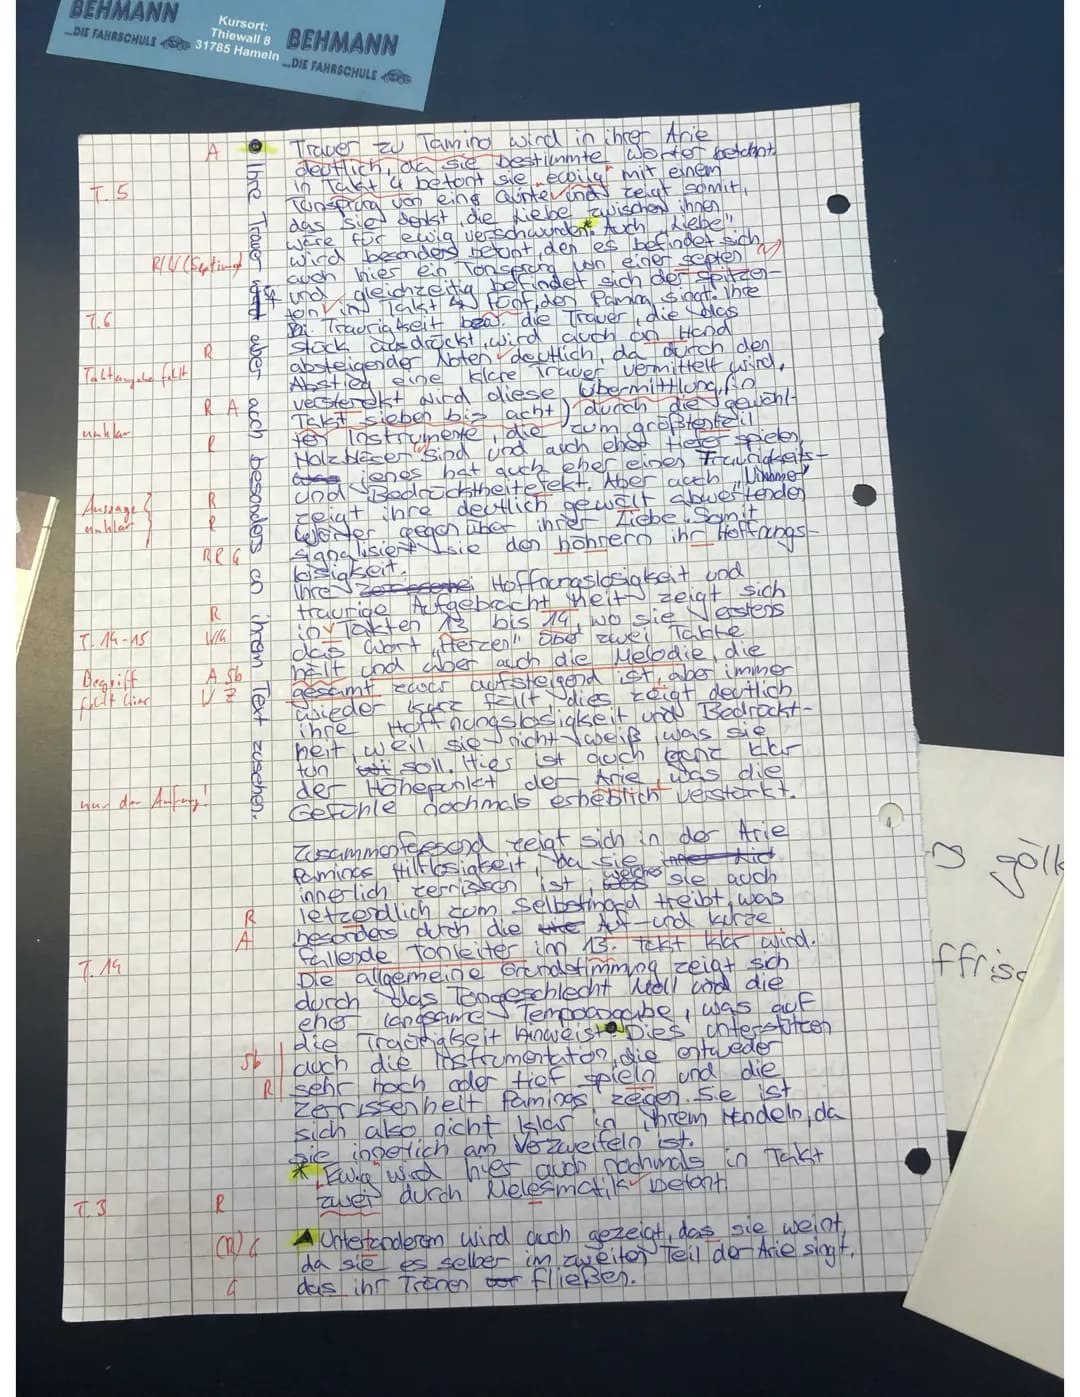 BEHMANN
...DIE FAHRSCHULE
Kursort:
Thiewall 8
31785 Hameln
BEHMANN
...DIE FAHRSCHULE
A
Trauer zu Tamino wird in ihrer Arie
deutlich, da sie bestimmte Wörter betohnt.
T. 5
in Takt 4 betont sie „ewig" mit einem
Tonsprung von eine Quinte und zeigt somit,
das sie denkt, die Liebe zwischen ihnen
wäre für ewig verschwunden* Auch „Liebe"
wird besonders betont, den es befindet sich
R/W (Septime)
auch hier ein Tonsprung von einer Septen
und gleichzeitig befindet sich der Spitzen-
ton in Takt fünf, den Pamina singt. Ihre
T.6
Traurigkeit bzw. die Trauer, die das
Stück ausdrückt, wird auch an Hand
R
absteigender Noten deutlich, da durch den
Taktangabe fehlt
Abstieg eine klare Trauer vermittelt wird,
verstärekt wird diese Übermittlung, (in
R A
Takt sieben bis acht) durch die gewähl-
unklar
ten Instrumente, die zum größtenteil
R
Holzbläser sind und auch eher tiefer spielen,
jenes hat auch eher einen Traurigkeits-
und Bedrücktheitefekt. Aber auch „Nimmer"
Aussage
unklar
R
zeigt ihre deutlich gewält abwertenden
R
Wörter gegenüber ihrer Liebe. Somit
RR G
signalisiert sie den höhrern ihr Hoffnungs-
losigkeit.
Ihre Hoffnungslosigkeit und
traurige Aufgebrachtheit zeigt sich
R
in Takten 13 bis 14, wo sie erstens
T. 14-15
W/G
das Wort „Herzen" über zwei Takte
Begriff
fehlt hier
A Sb
hält und aber auch die Melodie, die
V Z
gesamt zwar aufsteigend ist, aber immer
wieder kurz fällt, dies zeigt deutlich
ihre Hoffnungslosigkeit und Bedrückt-
heit, weil sie nicht weiß, was sie
tun soll. Hier ist auch ganz klar
der Höhepunkt der Arie, was die
nur der Anfang!
Gefühle dochmals erheblich verstärkt.
Ihre Trauer ist aber auch besonders in ihrem Text zusehen.
Zusammenfassend zeigt sich in der Arie
Paminas Hilflosigkeit, da sie
innerlich zerrissen ist, welches sie auch
R
letzendlich zum Selbstmord treibt, was
A
besonders durch die Auf- und kurze
fallende Tonleiter im 13. Takt klar wird.
T. 14
Die allgemeine Grundstimmung zeigt sich
durch das Tongeschlecht Moll und die
eher langsame Tempoangabe, was auf
die Traurigkeit hinweist. Dies unterstützen
Sb
auch die Instrumentation, die entweder
R
sehr hoch oder tief spieln und die
Zerrissenheit Paminas zeigen. Sie ist
sich also nicht klar in ihrem Handeln, da
sie innerlich am Verzweifeln ist.
* „Ewig" wird hier auch nochmals in Takt
T.3
R
zwei durch Melesmatik betont.
(R) G
▲ Unteranderem wird auch gezeigt, das sie weint,
da sie es selber im zweiten Teil der Arie singt,
G
das ihr Tränen fließen.